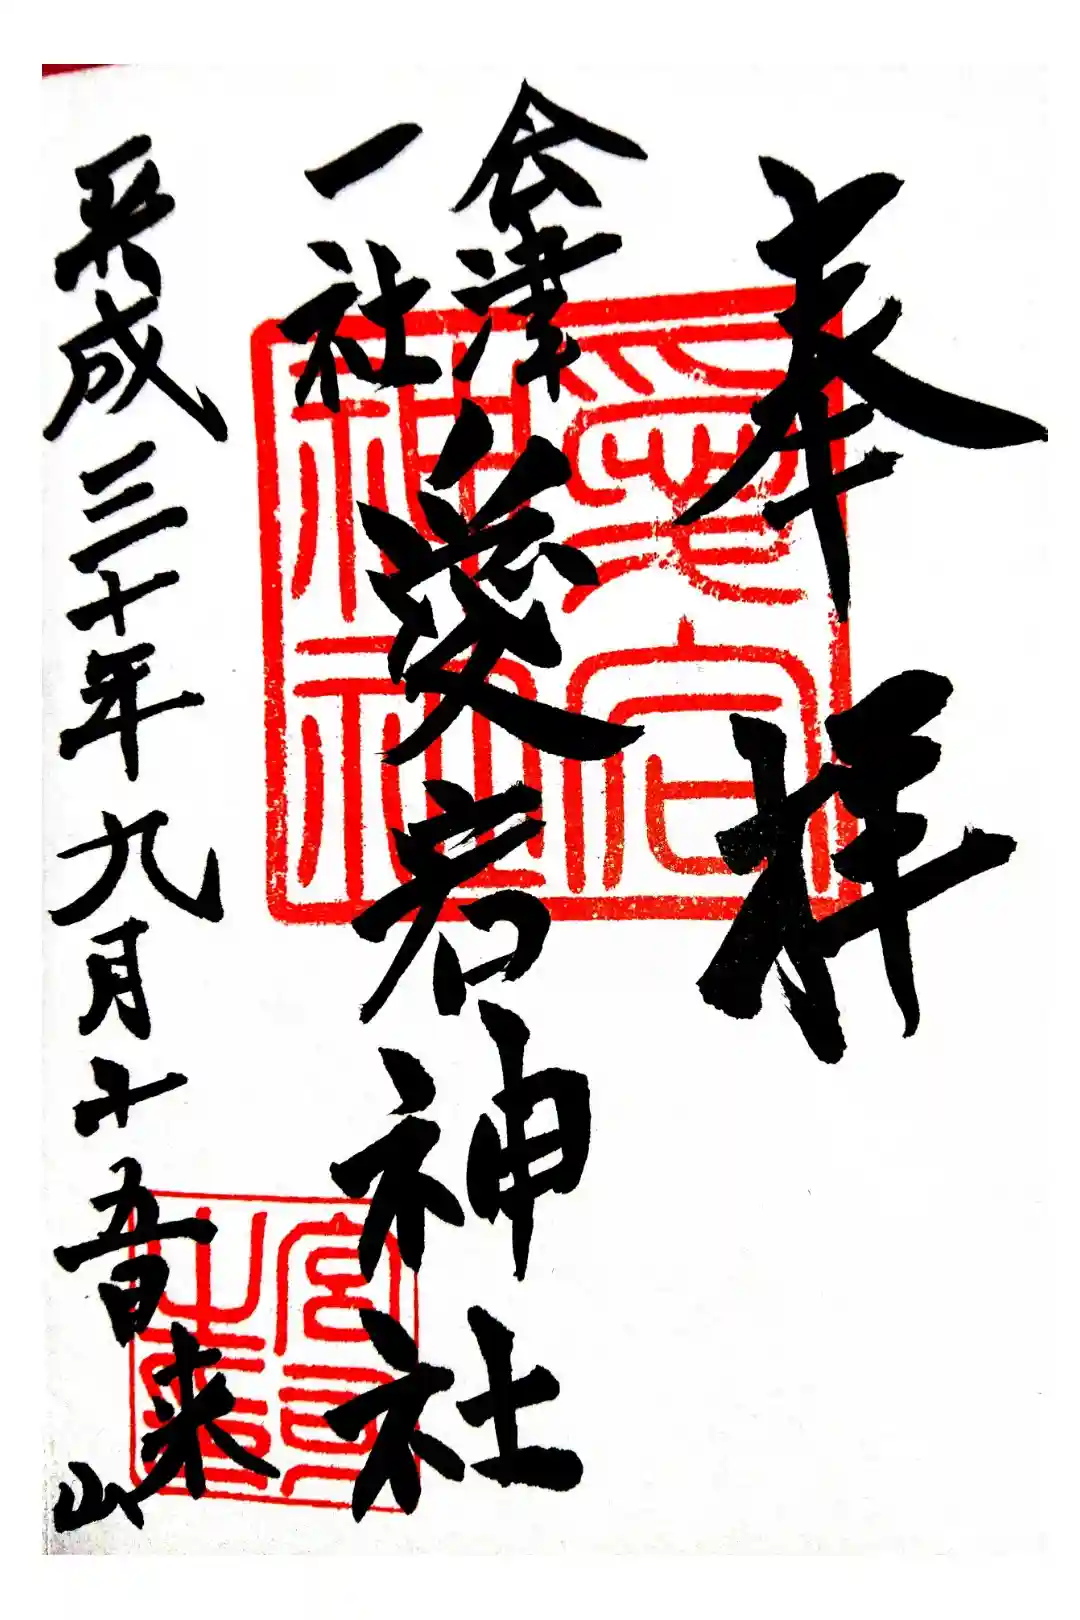 奉拝
会津
一社
愛宕神社
平成三十年九月十五日来山
愛宕
宮司